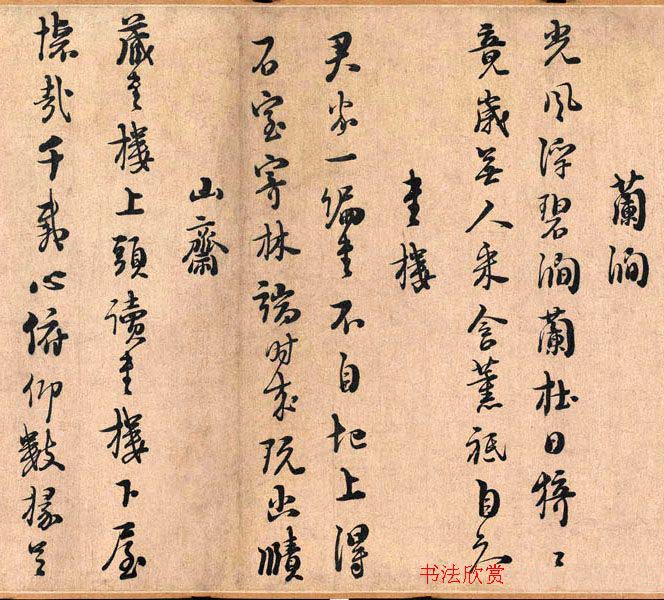 蘭澗
光風浮碧澗蘭杜日猗〻
竟歲無人采含薰祗自知
書樓
君家一編書不自圯上得
石室寄林端時來玩幽賾
山齋
藏書樓上頭讀書樓下屋
懷哉千載心俯仰數椽足
书法欣赏